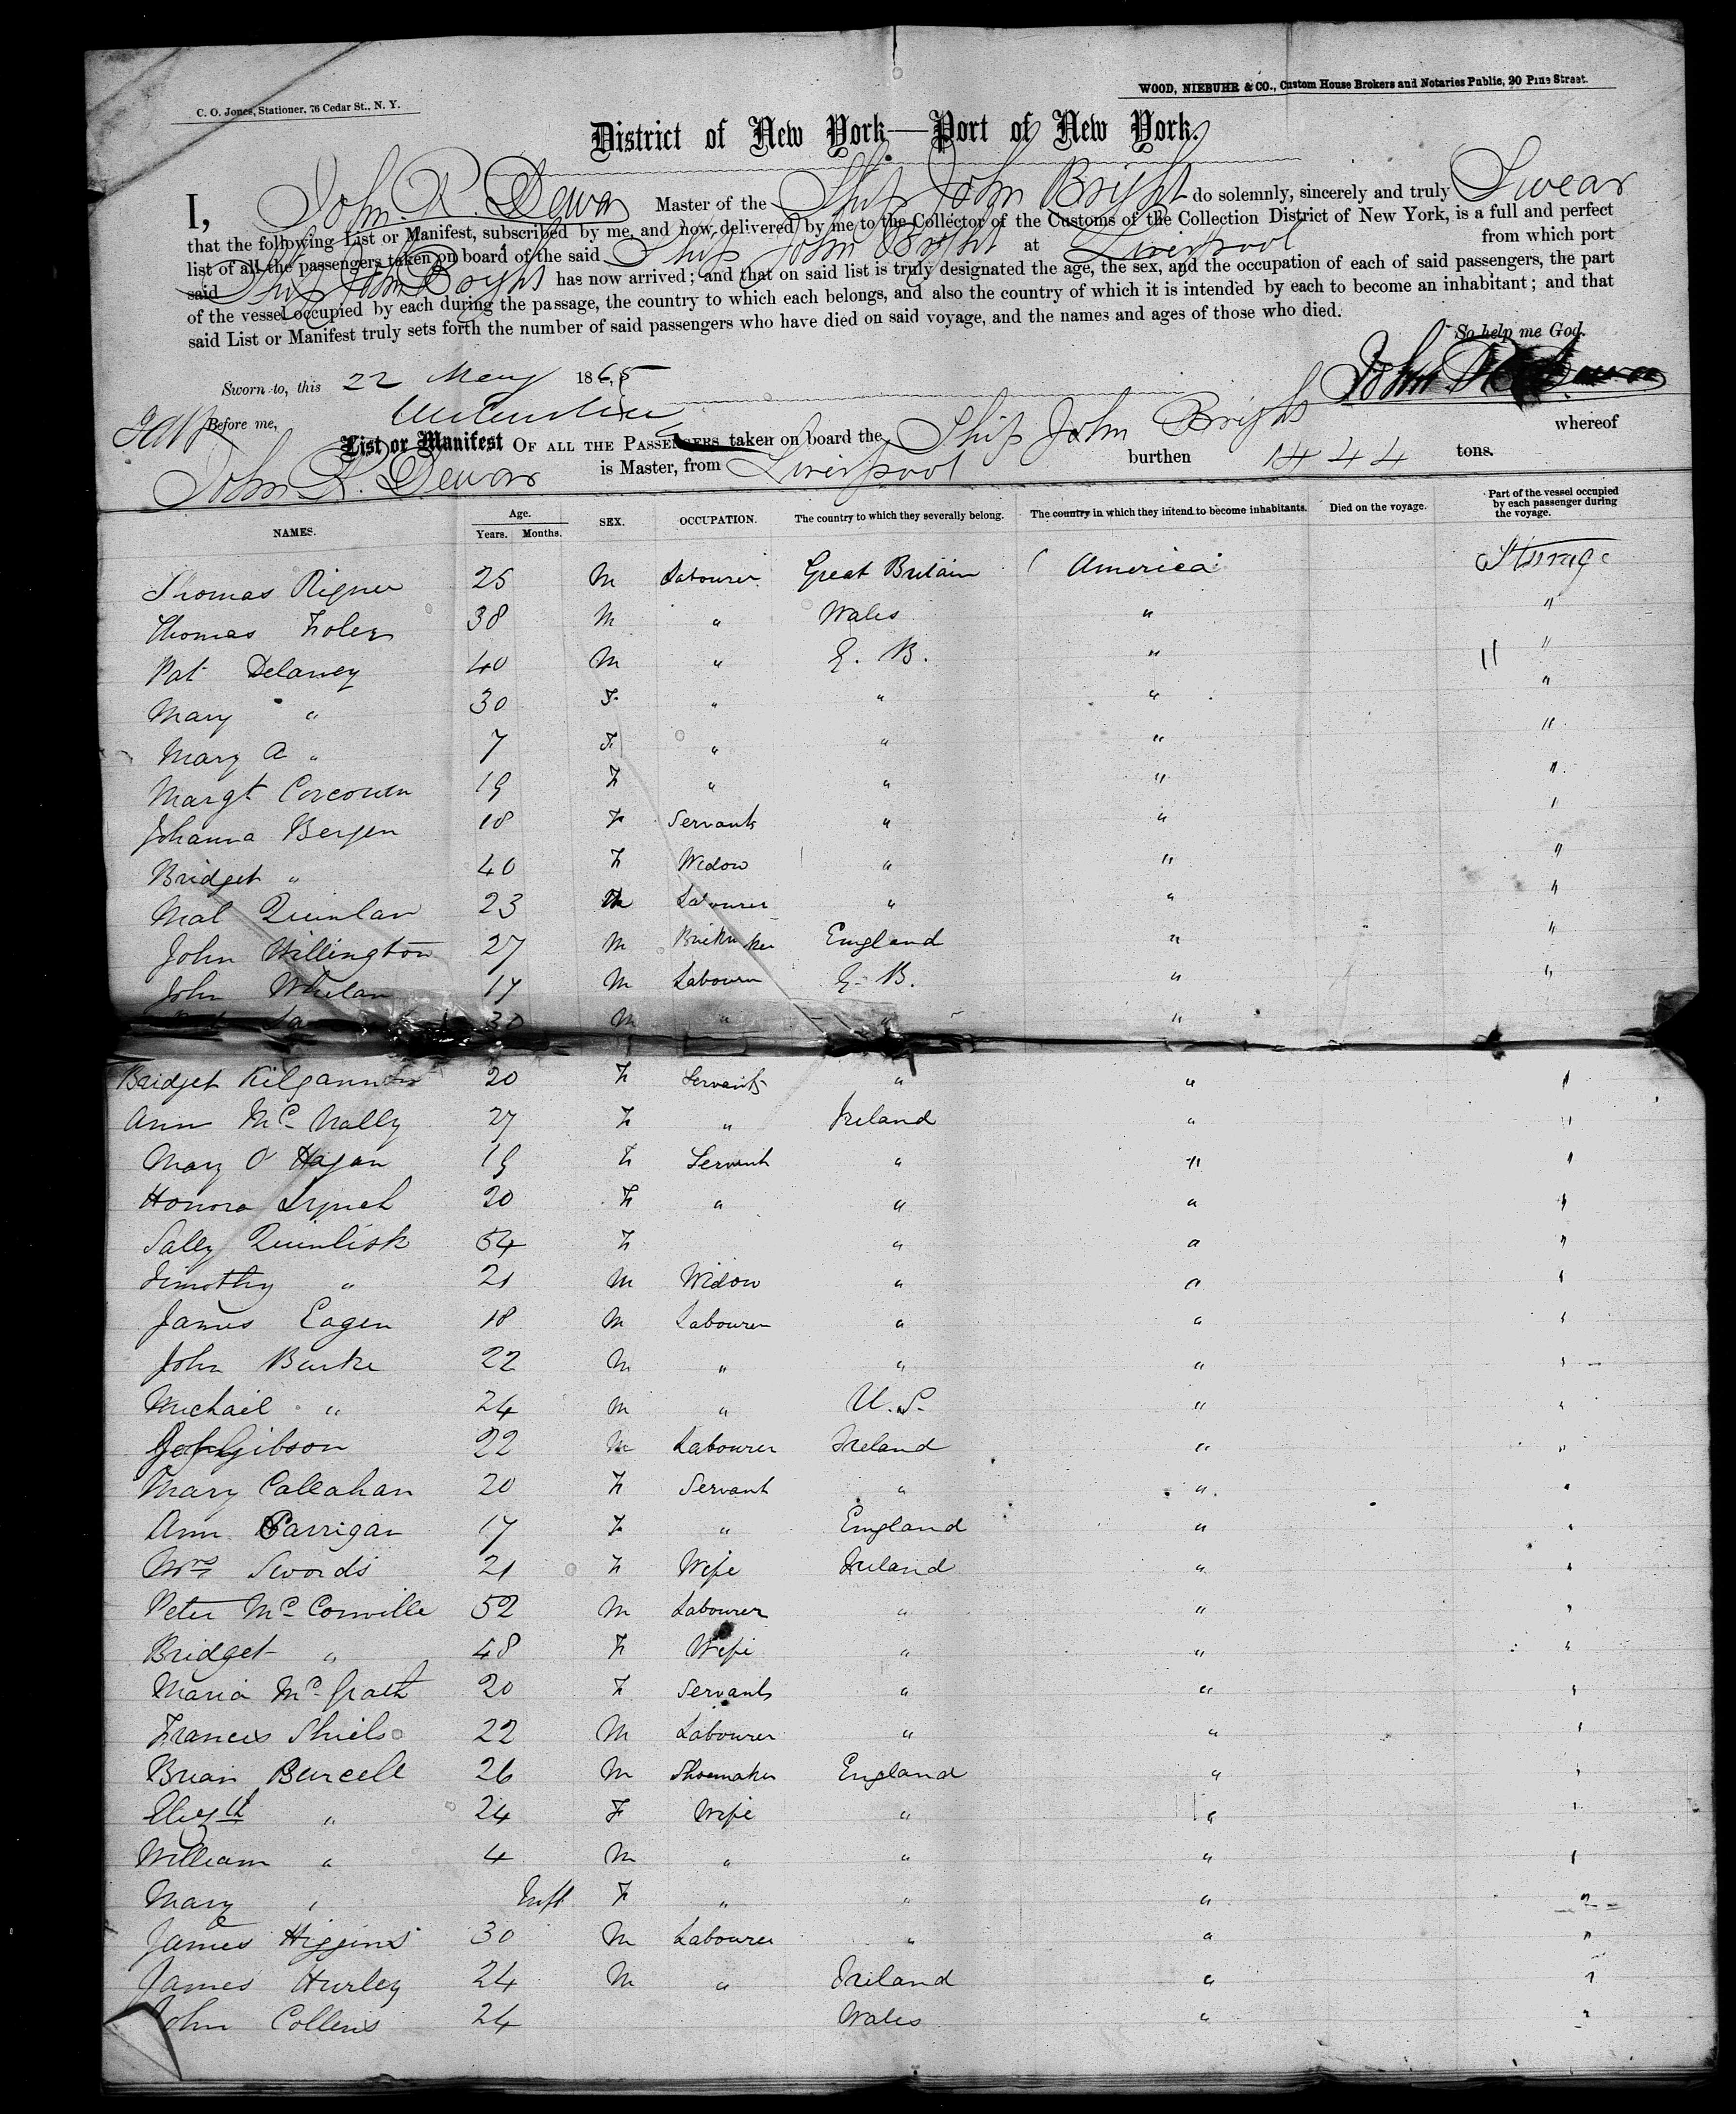 C. O. Jones, Stationer, 76 Cedar St., N. Y.
WOOD, NIEBUHR & CO., Custom House Brokers and Notaries Public, 20 Pine Street.
District of New York—Port of New York.
I, John R. Dewar Master of the Ship John Bright do solemnly, sincerely and truly Swear
that the following List or Manifest, subscribed by me, and now delivered by me to the Collector of the Customs of the Collection District of New York, is a full and perfect
list of all the passengers taken on board of the said Ship John Bright at Liverpool from which port
said Ship John Bright has now arrived; and that on said list is truly designated the age, the sex, and the occupation of each of said passengers, the part
of the vessel occupied by each during the passage, the country to which each belongs, and also the country of which it is intended by each to become an inhabitant; and that
said List or Manifest truly sets forth the number of said passengers who have died on said voyage, and the names and ages of those who died.
So help me God.
Sworn to, this 22 May 1865 John R Dewar
Before me,
List or Manifest OF ALL THE PASSENGERS taken on board the Ship John Bright whereof
John R. Dewar is Master, from Liverpool burthen 1444 tons.
NAMES. Age. Years. Months. SEX. OCCUPATION. The country to which they severally belong. The country in which they intend to become inhabitants. Died on the voyage. Part of the vessel occupied by each passenger during the voyage.
Thomas 25 M Labourer Great Britain America Steerage
Thomas 38 M " Wales " "
Pat Delaney 40 M " G. B. " " "
Mary " 30 F " " " "
Mary A " 7 F " " " "
Margt Corcoran 19 F " " " "
Johanna Bergen 18 F Servants " " "
Bridget " 40 F Widow " " "
Mal Quinlan 23 M Labourer " " "
John Willington 27 M England " "
John Whelan 17 M Labourer G. B. " "
30 M " " "
Bridget Kilgannon 20 F Servants " " "
Ann Mc Nally 27 F " Ireland " "
Mary O Hagan 19 F Servant " " "
Honora Lynch 20 F " " " "
Sally Quinlisk 54 F " " "
Timothy " 21 M Widow " " "
James Eagen 18 M Labourer " " "
John Burke 22 M " " " "
Michail " 24 M " U. S. " "
Gibson 22 M Labourer Ireland " "
Mary Callahan 20 F Servant " " "
Ann Carrigan 17 F " England " "
Mrs Swords 21 F Wife Ireland " "
Peter Mc Conville 52 M Labourer " " "
Bridget " 48 F Wife " " "
Maria Mc Grath 20 F Servants " " "
Francis Shiels 22 M Labourer " " "
Brian Burcell 26 M Shoemaker England " "
Elizth " 24 F Wife " " "
William " 4 M " " " "
Mary " Inft F " " " "
James Higgins 30 M Labourer " " "
James Hurley 24 M " Ireland " "
John Collens 24 Wales " "